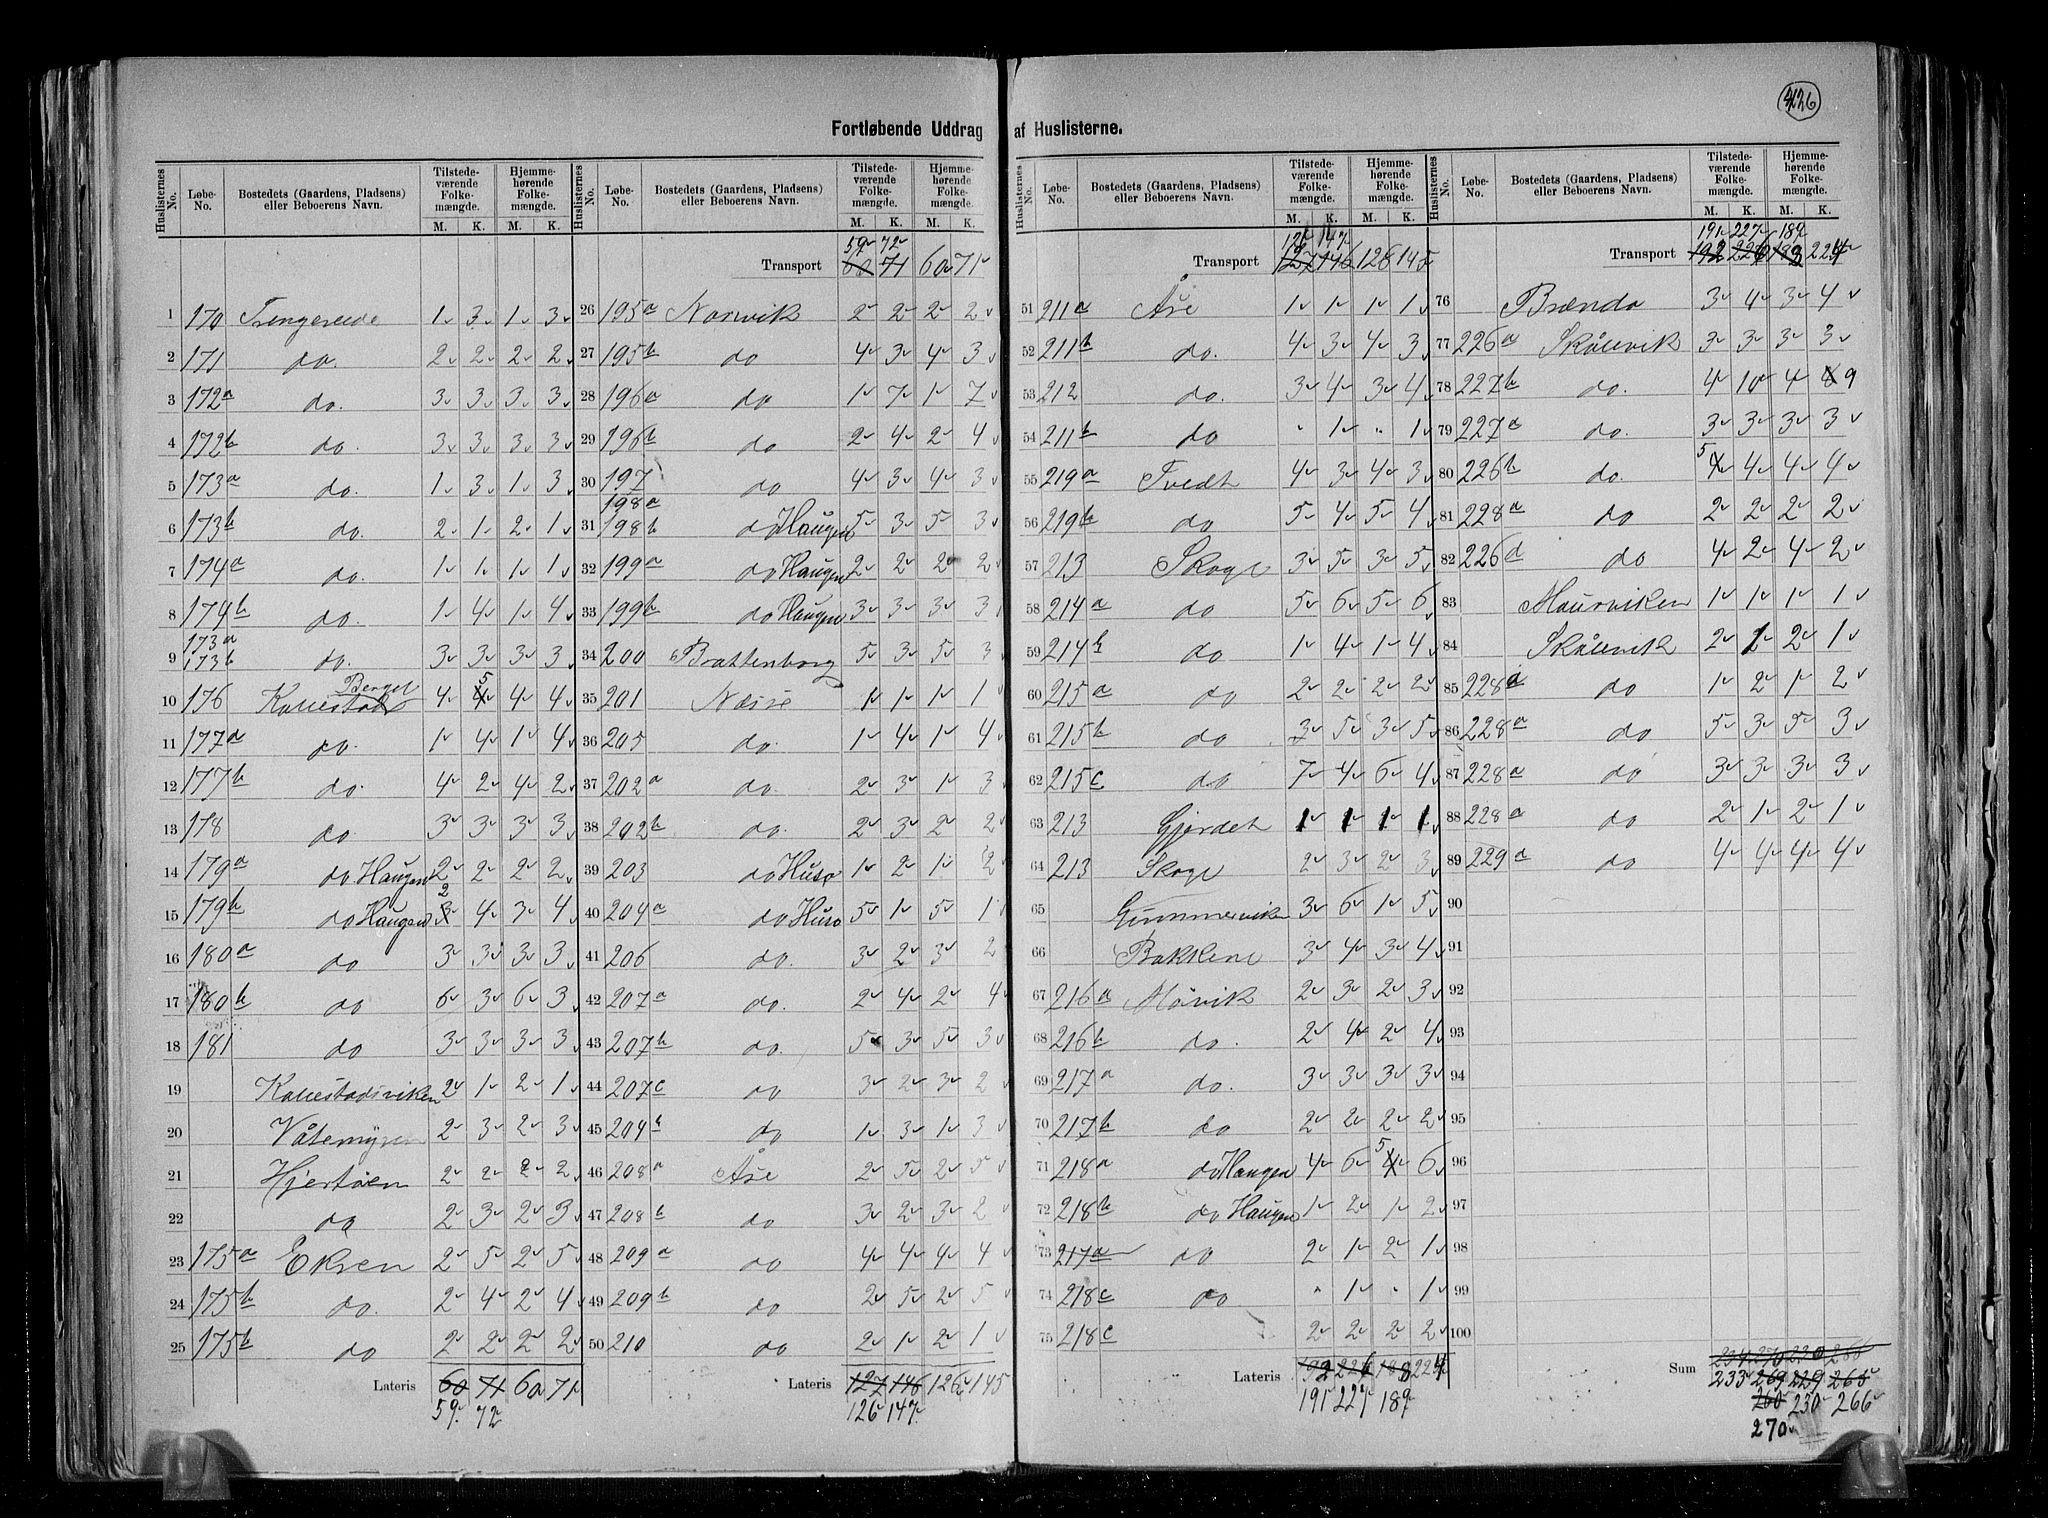 426
Fortløbende Uddrag af Huslisterne.
Huslisternes No. Løbe-No. Bostedets (Gaardens, Pladsens) eller Beboerens Navn. Tilstedeværende Folkemængde. Hjemmehørende Folkemængde.
M. K. M. K.
1 170 3 1 3
2 171 do. 2 2 2 2
3 172a do. 3 3 3 3
4 172b do. 3 3 3 3
5 173a do. 1 3 1 3
6 173b do. 2 1 2 1
7 174a do. 1 1 1 1
8 174b do. 1 4 1 4
9 173a 173b do. 3 3 3 3
10 176 Berget 4 4 5 4 4
11 177a do. 1 4 1 4
12 177b do. 4 2 4 2
13 178 do 3 3 3 3
14 179a do Haugen 2 2 2 2
15 179b do Haugen 3 2 4 3 4
16 180a do 3 3 3 3
17 180b do 6 3 6 3
18 181 do 3 3 3 3
19 Kallestadsviken 2 1 2 1
20 Våtemyren 2 3 2 3
21 Hjertøen 2 2 2 2
22 do 2 3 2 3
23 175a Ekren 2 5 2 5
24 175b do. 2 4 2 4
25 175b do 2 2 2 2
Lateris 60 71 60 71
59 72
Huslisternes No. Løbe-No. Bostedets (Gaardens, Pladsens) eller Beboerens Navn. Tilstedeværende Folkemængde. Hjemmehørende Folkemængde.
M. K. M. K.
59 72
Transport 60 71 60 71
26 195a Norvik 2 2 2 2
27 195b do 4 3 4 3
28 196a do 1 7 1 7
29 196b do 2 4 2 4
30 197 do 4 3 4 3
31 198a 198b do Haugen 5 3 5 3
32 199a do Haugen 2 2 2 2
33 199b do Haugen 3 3 3 3
34 200 Brattenborg 5 3 5 3
35 201 Næsse 1 1 1 1
36 205 do. 1 4 1 4
37 202a do. 2 3 1 3
38 202b do. 2 3 2 2
39 203 do Huso 1 2 1 2
40 204a do Huso 5 1 5 1
41 206 do. 3 2 3 2
42 207a do. 2 4 2 4
43 207b do. 5 3 5 3
44 207c do 3 2 3 2
45 204b do 1 3 1 3
46 208a Åse 2 5 2 5
47 208b do 3 2 3 2
48 209a do 4 4 4 4
49 209b do 2 5 2 5
50 210 do 2 1 2 1
Lateris 127 146 126 145
126 147
Huslisternes No. Løbe-No. Bostedets (Gaardens, Pladsens) eller Beboerens Navn. Tilstedeværende Folkemængde. Hjemmehørende Folkemængde.
M. K. M. K.
126 147
Transport 127 146 126 145
51 211a Åse 1 1 1 1
52 211b do. 4 3 4 3
53 212 do. 3 4 3 4
54 211b do " 1 " 1
55 219a Tvedt 4 3 4 3
56 219b do 5 4 5 4
57 213 Skoge 3 5 3 5
58 214a do 5 6 5 6
59 214b do 1 4 1 4
60 215a do 2 2 2 2
61 215b do 3 5 3 5
62 215c do 7 4 6 4
63 213 Gjerdet 1 1 1 1
64 213 Skoge 2 3 2 3
65 Gummerviken 3 6 1 5
66 Bakkene 3 4 3 4
67 216a Morvik 2 3 2 3
68 216b do. 2 4 2 4
69 217a do. 3 3 3 3
70 217b do 2 2 2 2
71 218a do Haugen 4 6 4 5 6
72 218b do Haugen 1 2 1 2
73 217a do 2 1 2 1
74 218c do " 1 " 1
75 218c 2 2 2 2
Lateris 192 226 188 224
191 227 189
Huslisternes No. Løbe-No. Bostedets (Gaardens, Pladsens) eller Beboerens Navn. Tilstedeværende Folkemængde. Hjemmehørende Folkemængde.
M. K. M. K.
191 227 189
Transport 192 226 188 224
76 Brendo 3 4 3 4
77 226a Skålevik 3 3 3 3
78 227b do. 4 10 4 9
79 227a do. 3 3 3 3
80 226b do. 4 5 4 4 4
81 228a do 2 2 2 2
82 226d do 4 2 4 2
83 Maurviken 1 1 1 1
84 Skålevik 2 1 2 1
85 228a do 1 2 1 2
86 228a do 5 3 5 3
87 228a do 3 3 3 3
88 228a do 2 1 2 1
89 229a do 4 4 4 4
90
91
92
93
94
95
96
97
98
99
100
Sum 234 270 230 266
233 269 229 265
230 266
270